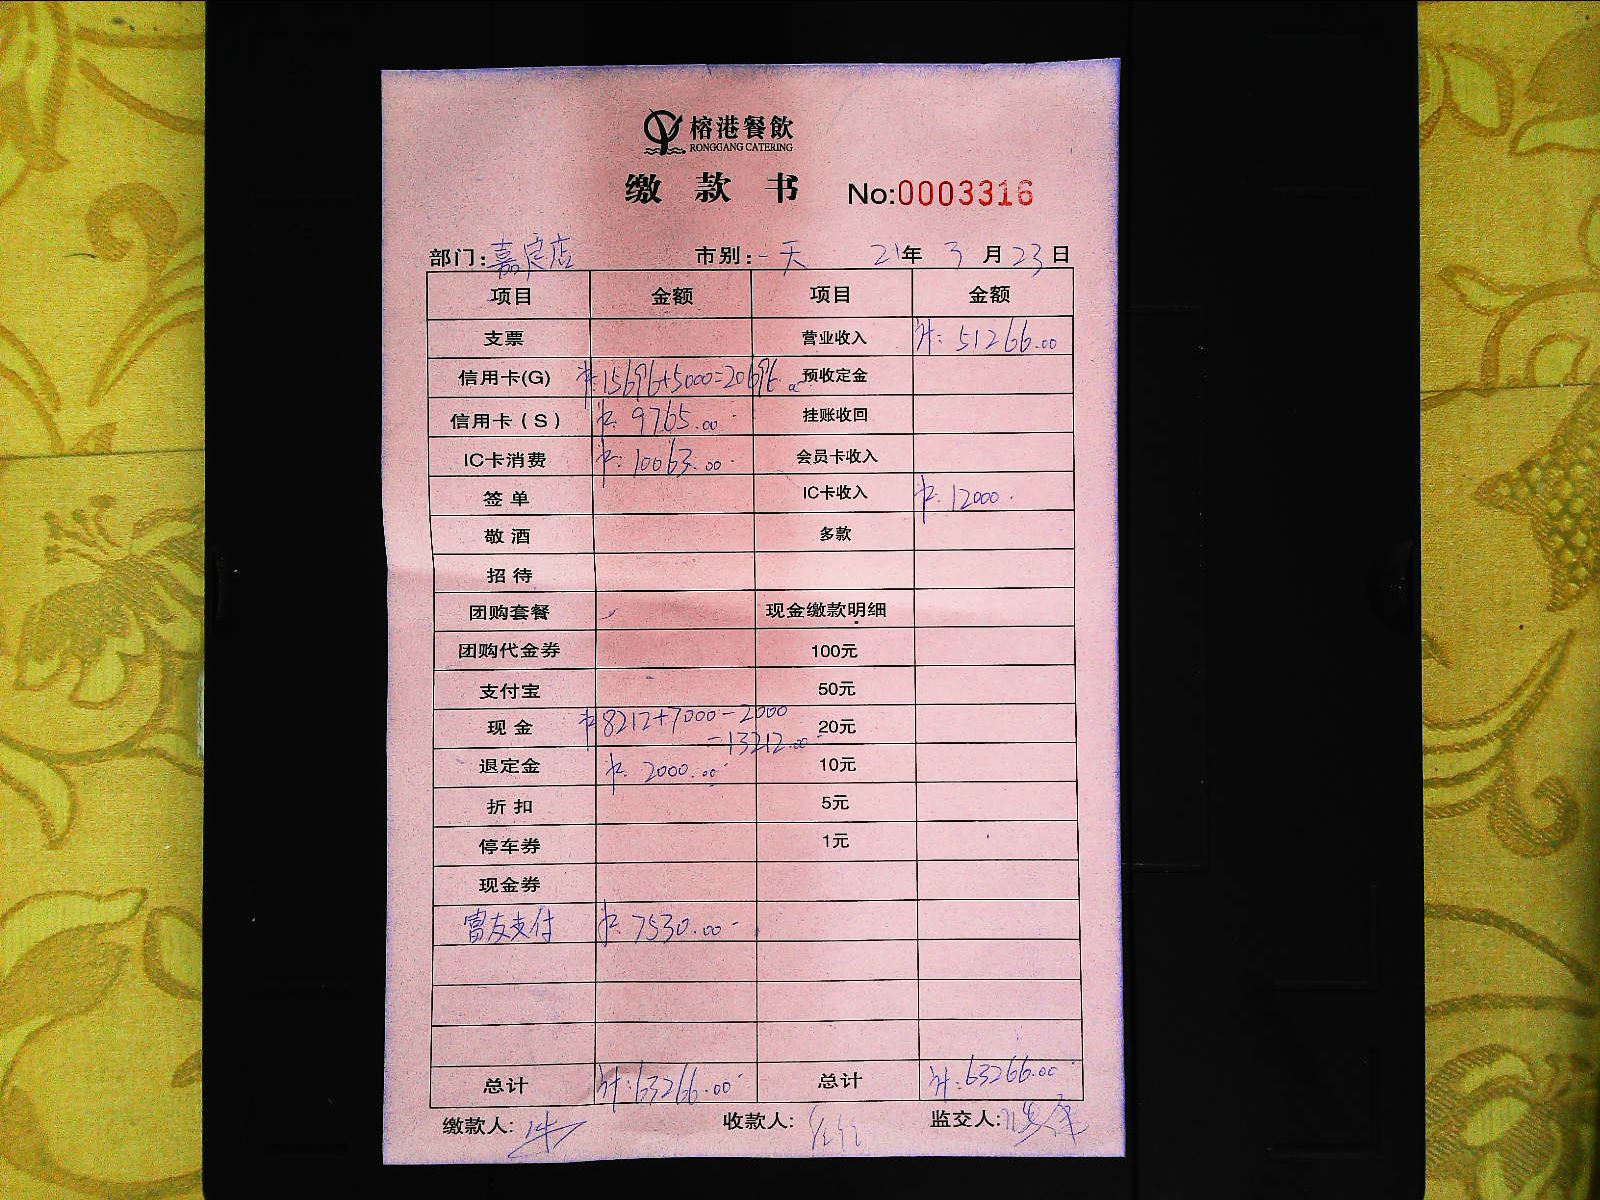 榕港餐飲
RONGGANG CATERING
缴款书 No:0003316
部门:嘉定店 市别:一天 21年 3月23日
项目 金额 项目 金额
支票 营业收入 计: 51266.00
信用卡(G) 15696+5000=20696.00 预收定金
信用卡(S) 9765.00 挂账收回
IC卡消费 10063.00 会员卡收入
签单 IC卡收入 12000
敬酒 多款
招待
团购套餐 现金缴款明细
团购代金券 100元
支付宝 50元
现金 8212+7000-2000 20元
=13212.00
退定金 2000.00 10元
折扣 5元
停车券 1元
现金券
富友支付 7530.00
总计 计:63266.00 总计 计:63266.00
缴款人: 收款人: 监交人: